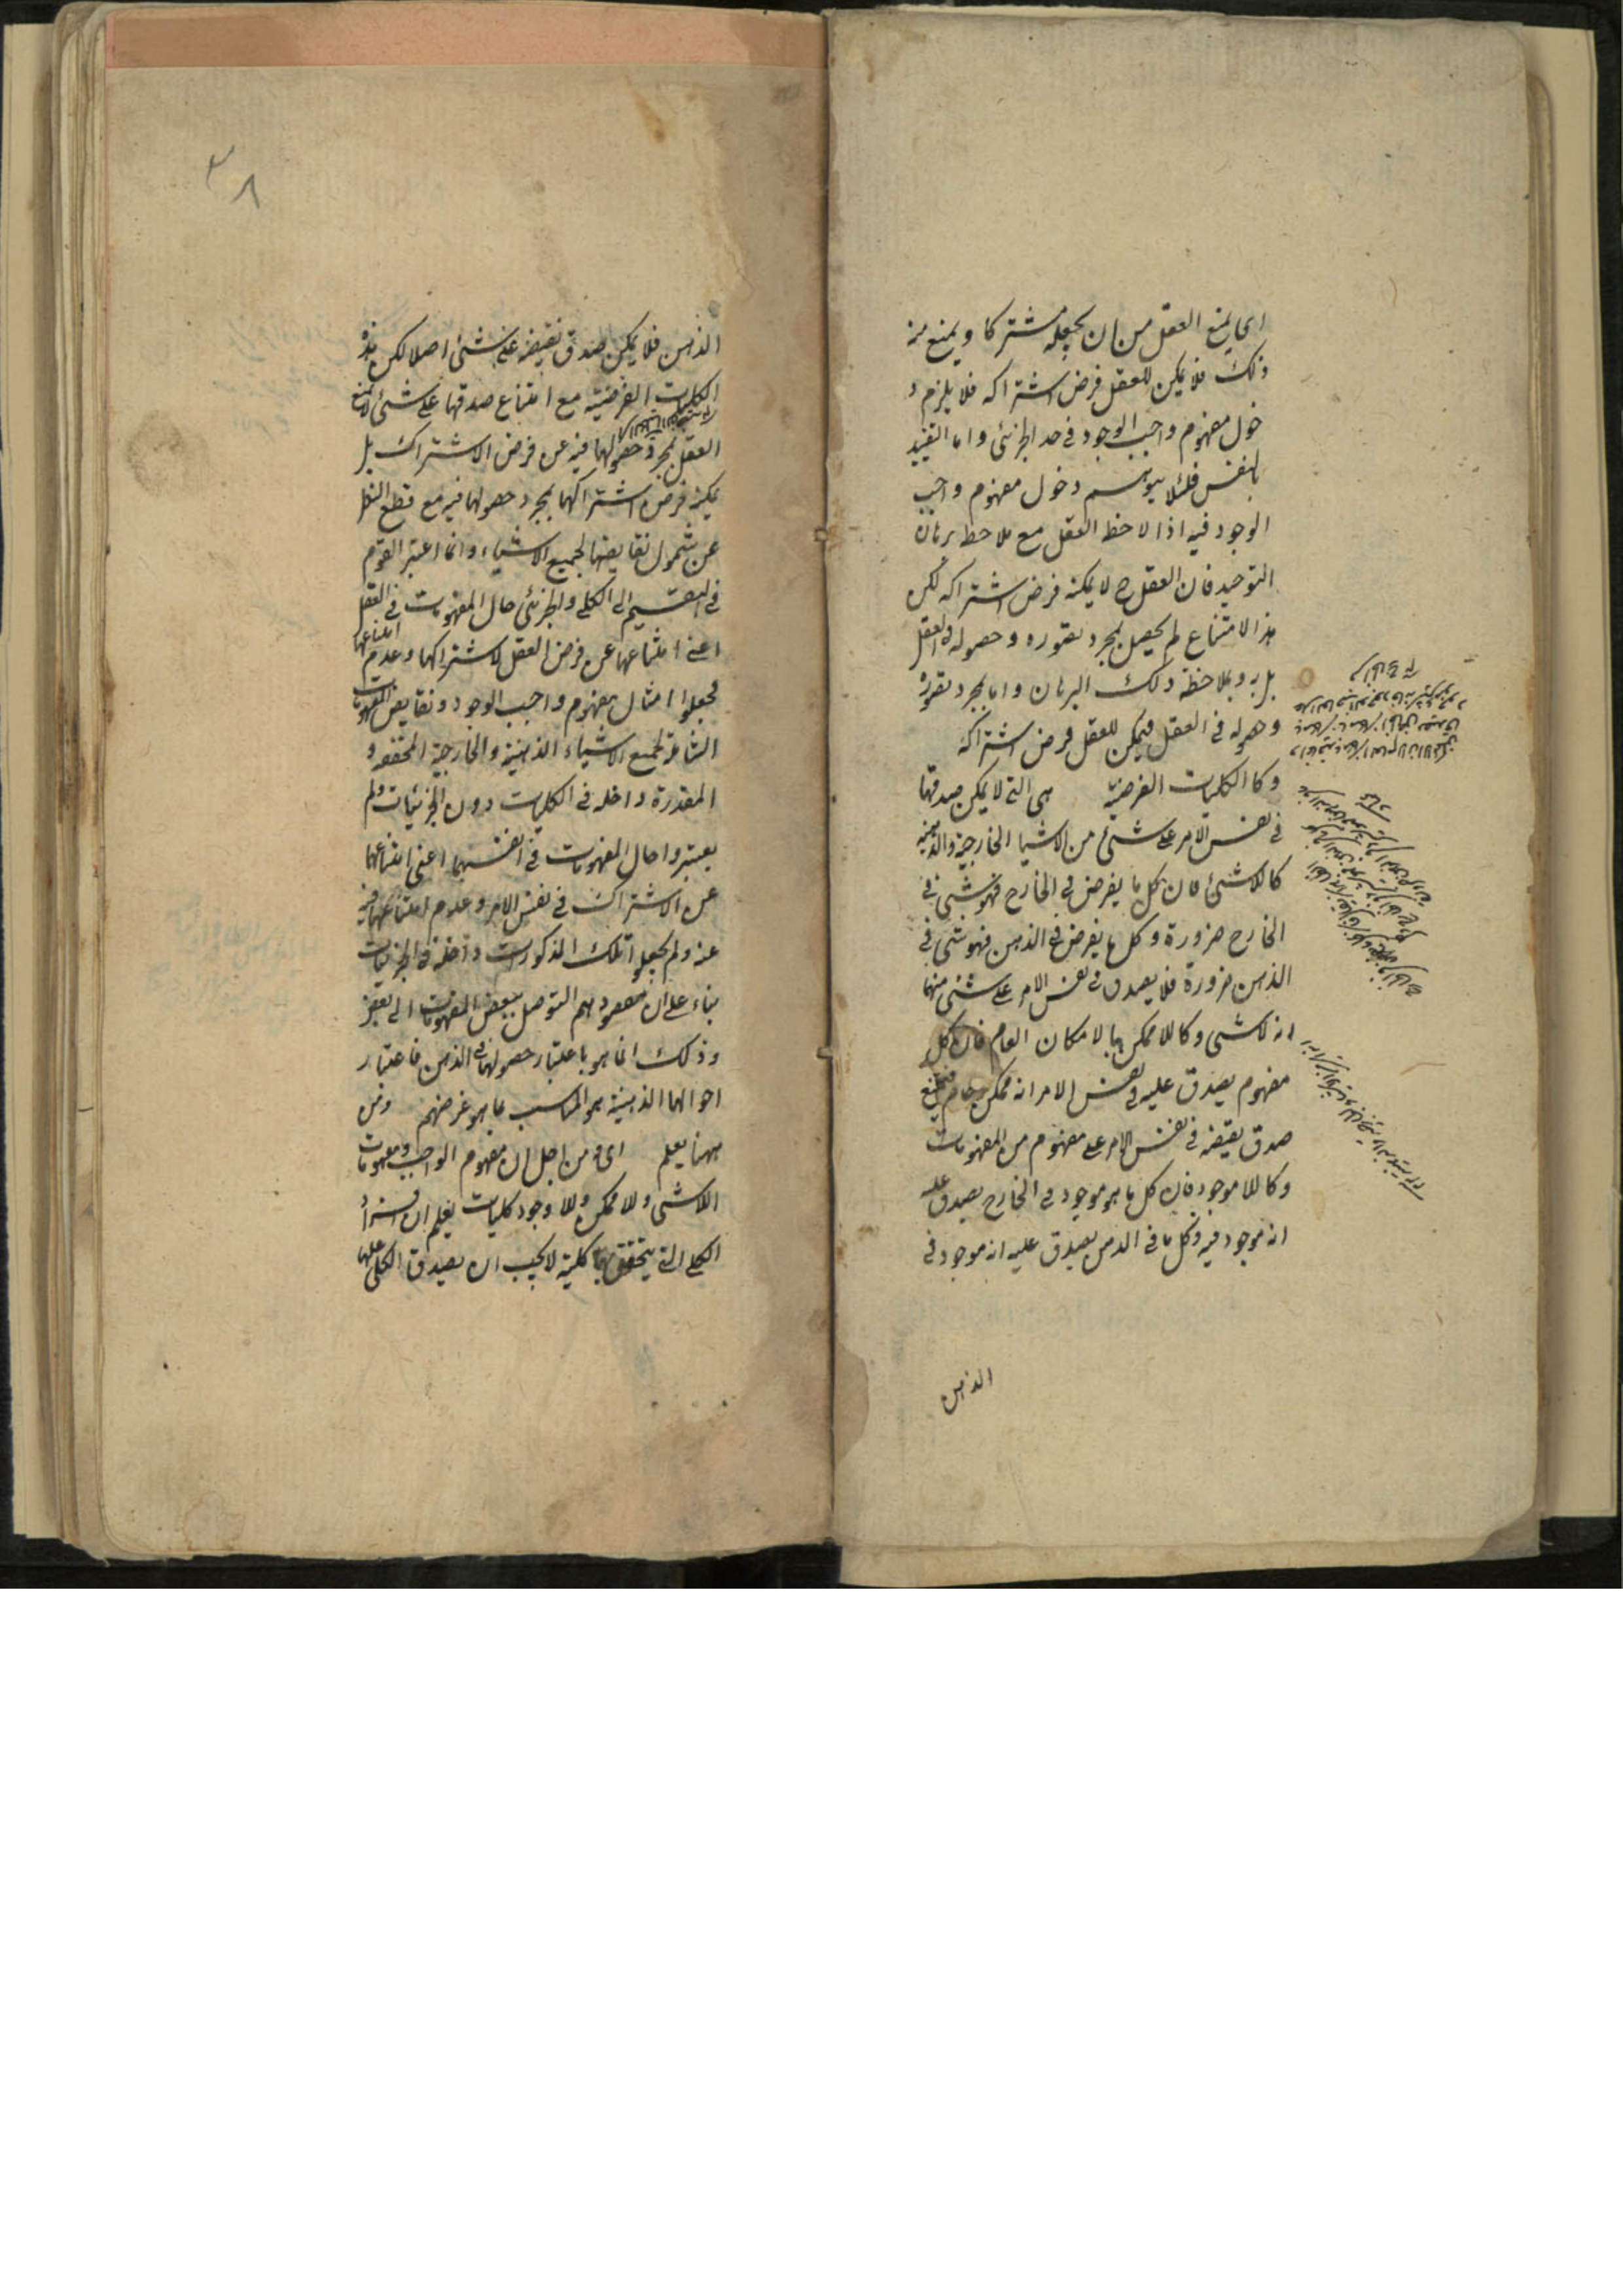 اى يمنع العقل من ان يجعله مشتركا ويمنع منه
ذلك فلا يمكن للعقل فرض اشتراكه فلا يلزم د
خول مفهوم واجب الوجود فى حد الجزئى واما التقييد
بالنفس فلئلا يتوهم دخول مفهوم واجب
الوجود فيه اذا لاحظ العقل مع ملاحظ برهان
التوحيد فان العقل ح لا يمكنه فرض اشتراكه لكن
هذا الامتناع لم يحصل بمجرد تصوره وحصوله فى العقل
بل به وبملاحظة ذلك البرهان واما بمجرد تصوره
وحصوله فى العقل فيمكن للعقل فرض اشتراكه
وكا الكليات الفرضية هى التى لا يمكن صدقها
فى نفس الامر على شئ من الاشيا الخارجية والذهنية
كاللاشئ فان كل ما يفرض فى الخارج فهو شئ فى
الخارج ضرورة وكل ما يفرض فى الذهن فهو شئ فى
الذهن ضرورة فلا يصدق فى نفس الامر على شئ منهما
انه لاشئ وكاللاممكن بالامكان العام فان كل
مفهوم يصدق عليه فى نفس الامر انه ممكن عام فيمتنع
صدق نقيضه فى نفس الامر على مفهوم من المفهومات
وكاللاموجود فان كل ما هو موجود فى الخارج يصدق عليه
انه موجود فيه وكل ما فى الذهن يصدق عليه انه موجود فى
الذهن
٣٨
الذهن فلا يمكن صدق نقيضه على شئ اصلا لكن هذه
الكليات الفرضية مع امتناع صدقها على شئ لا يمنع
العقل بمجرد حصولها فيه عن فرض الاشتراك بل
يمكنه فرض اشتراكها بمجرد حصولها فيه مع قطع النظر
عن شمول نقايضها لجميع الاشياء وانما اعتبر القوم
فى التقسيم الى الكلى والجزئى حال المفهومات فى العقل
اعنى امتناعها عن فرض العقل لاشتراكها وعدم امتناعها
فجعلوا امثال مفهوم واجب الوجود ونقايض المفهومات
الشاملة لجميع الاشياء الذهنية والخارجية المحققة و
المقدرة داخلة فى الكليات دون الجزئيات ولم
يعتبروا حال المفهومات فى انفسها اعنى امتناعها
عن الاشتراك فى نفس الامر وعدم امتناعها فيه
عنه ولم يجعلوا تلك المذكورات داخلة فى الجزئيات
بناء على ان مقصودهم التوصل ببعض المفهومات الى بعض
وذلك انما هو باعتبار حصولها فى الذهن فاعتبار
احوالها الذهنية هو المناسب بما هو غرضهم ومن
ههنا يعلم اى ومن اجل ان مفهوم الواجب ومفهومات
اللاشئ ولاممكن وللاوجود كليات يعلم ان افراد
الكلى التى يتحقق بها كليته لا يجب ان يصدق الكلى عليها